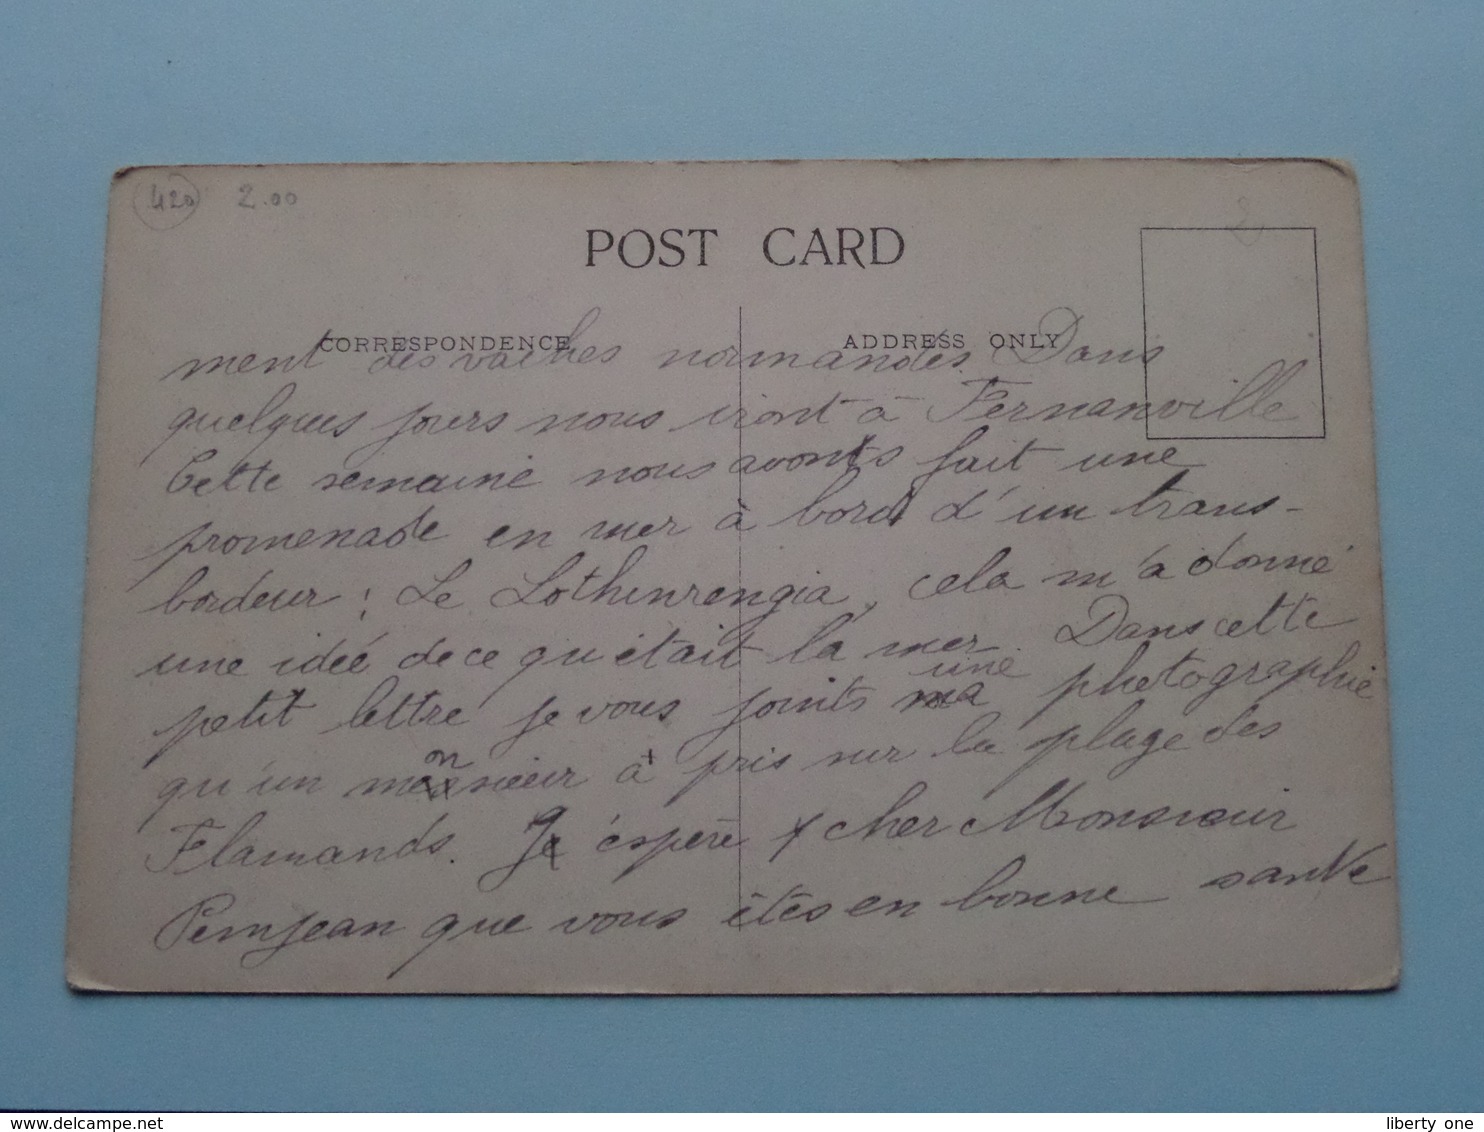 420 2.00
POST CARD
CORRESPONDENCE ADDRESS ONLY
ment des vaches normandes. Dans
quelques jours nous iront à Fermanville
Cette semaine nous avons fait une
promenade en mer à bord d'un trans-
bordeur : Le Lothenrengia, cela m'a donné
une idée de ce qu'était la mer. Dans cette
petit lettre je vous joints une photographie
qu'un monsieur a pris sur la plage des
Flamands. J'éspère cher Monsieur
Pemjean que vous êtes en bonne santé
www.delcampe.net
liberty one